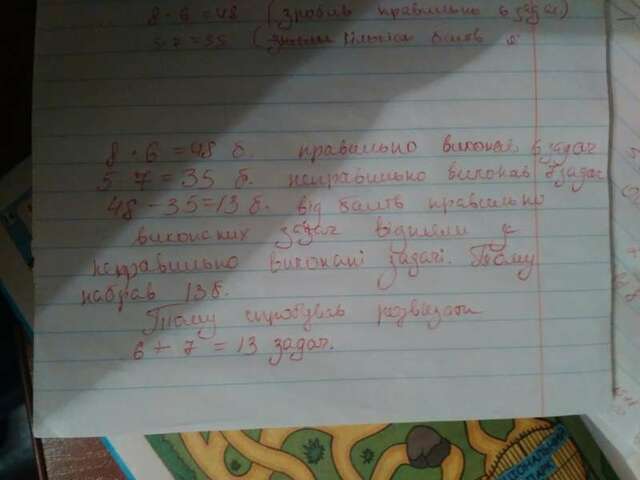 8 · 6 = 48 (зробив правильно 6 задач)
5 · 7 = 35 ( кількість балів
8 · 6 = 48 б. правильно виконав 6 задач
5 · 7 = 35 б. неправильно виконав задач
48 - 35 = 13 б. від балів правильно
виконаних задач відняли
неправильно виконані задачі. Тому
набрав 13 б.
Тому спробував розвязати
6 + 7 = 13 задач.
НАЦІОНАЛЬНИЙ
ПАРК